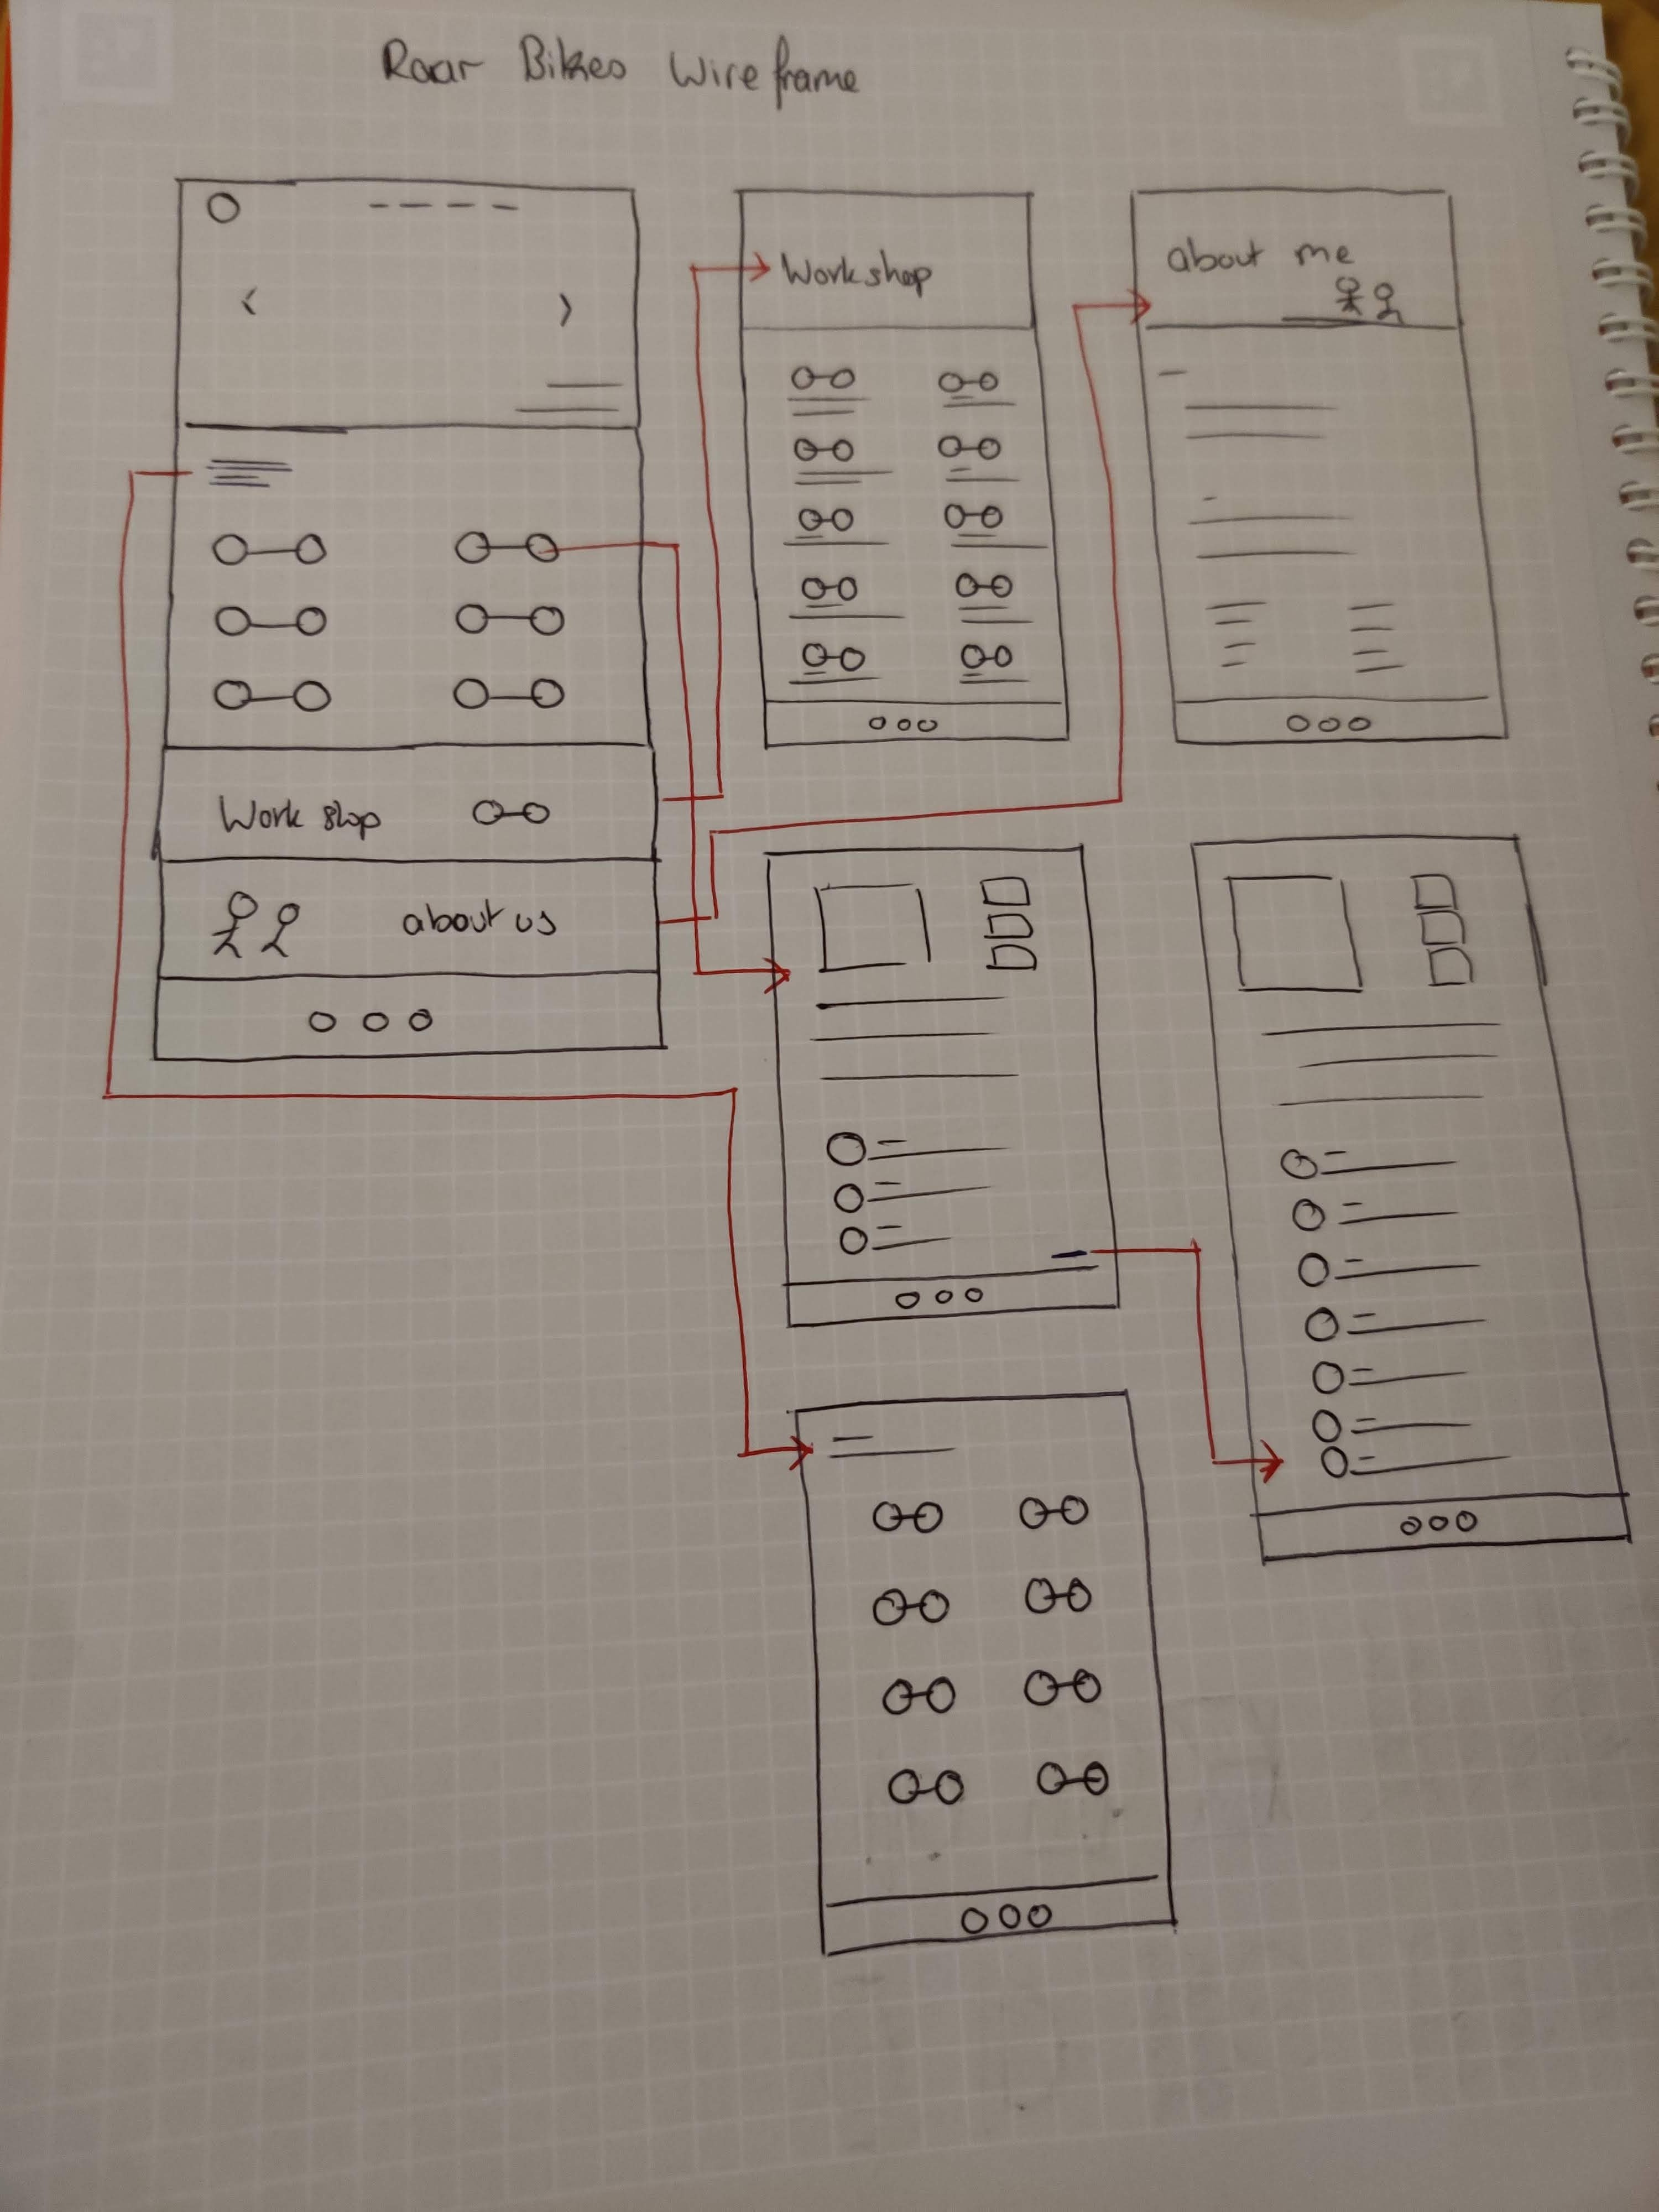 Roar Bikes Wireframe
Workshop
about me
Work shop
about us